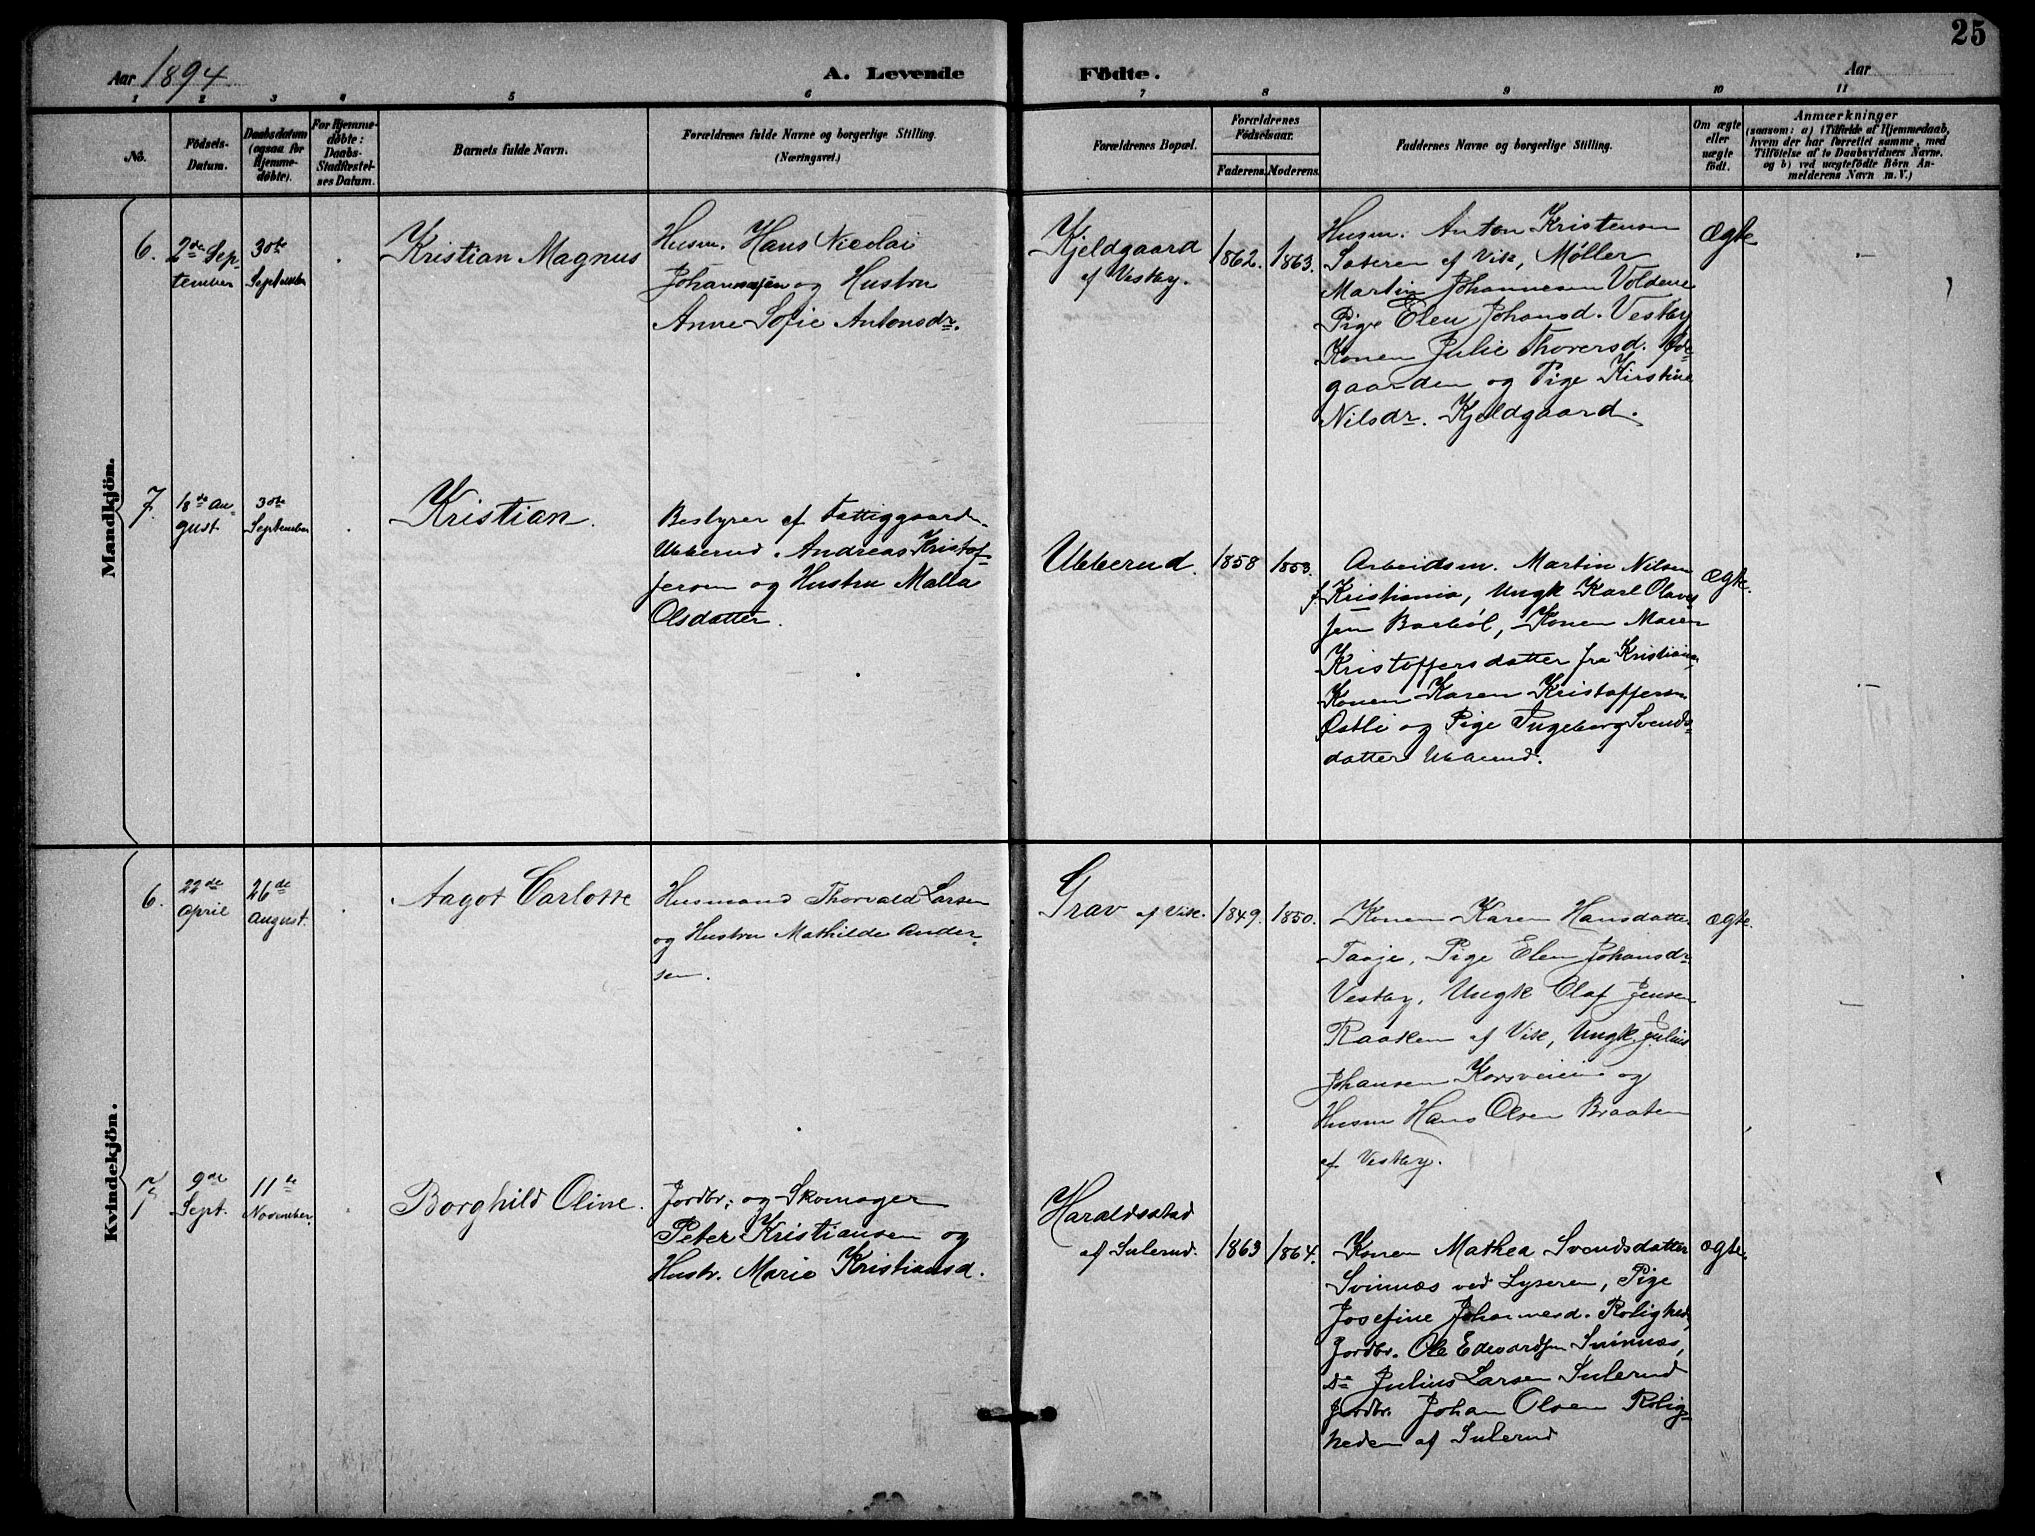 25
Aar 1894
A. Levende
Födte.
Aar
1 2 3 4 5 6 7 8 9 10 11
No.
Födsels-
Datum.
Daabsdatum
(ogsaa for
Hjemme-
döbte).
For Hjemme-
döbte:
Daabs-
Stadfæstel-
ses Datum.
Barnets fulde Navn.
Forældrenes fulde Navne og borgerlige Stilling.
(Næringsvei.)
Forældrenes Bopæl.
Forældrenes
Födselsaar.
Faderens. Moderens.
Faddernes Navne og borgerlige Stilling.
Om ægte
eller
uægte
födt.
Anmærkninger
(saasom: a) i Tilfælde af Hjemmedaab,
hvem der har forrettet samme, med
Tilföielse af to Daabsvidners Navne,
og b) ved uægtefödte Börn An-
melderens Navn m. V.)
Mandkjön.
6.
2de Sep-
tember
30te
September
Kristian Magnus
Husm. Hans Nicolai
Johannesen og Hustru
Anne Sofie Antonsdr.
Kjeldgaard
af Vestby.
1862.
1863.
Husm. Anton Kristensen
Sateren af Vik, Møller
Martin Johannesen Voldene
Pige Elen Johansd. Vestby
Konen Julie Thoversd.
gaarden og Pige Kirstine
Nilsdr. Kjeldgaard.
Ægte
7.
18de Au-
gust
30te
September
Kristian.
Bestyrer af Fattiggaarden
Ubberud. Andreas Kristof-
fersen og Hustru Malla
Olsdatter.
Ubberud.
1858
1853.
Arbeidsm. Martin Nilsen
f. Kristiania, Ungk Karl Olav-
sen Barbøl, Konen Maren
Kristoffersdatter fra Kristiania
Konen Karen Kristoffersen
Østli og Pige Ingeborg Svends-
datter Ubberud.
Ægte.
Kvindekjön.
6.
22de
April
26de
August.
Aagot Carlotte
Husmand Thorvald Larsen
og Hustru Mathilde Ander-
sen.
Grav af Vik.
1849.
1850.
Konen Karen Hansdatter
Taaje, Pige Elen Johansdr
Vestby, Ungk Olaf Jensen
Raaken af Vik, Ungk. Julius
Johansen Korsveien og
Husm Hans Olsen Braaten
af Vestby.
ægte.
7
9de
Sept.
11te
November.
Borghild Oline.
Jordbr. og Skomager
Peter Kristiansen og
Hustr. Marie Kristiansd.
Haraldsstad
af Sulerud.
1863
1864.
Konen Mathea Svendsdatter
Svinnæs ved Lyseren, Pige
Josefine Johannesd. Rolighed,
Jordbr. Ole Edvardsen Svinnæs,
Do Julius Larsen Sulerud
Jordbr. Johan Olsen Rolig-
heden af Sulerud
ægte.